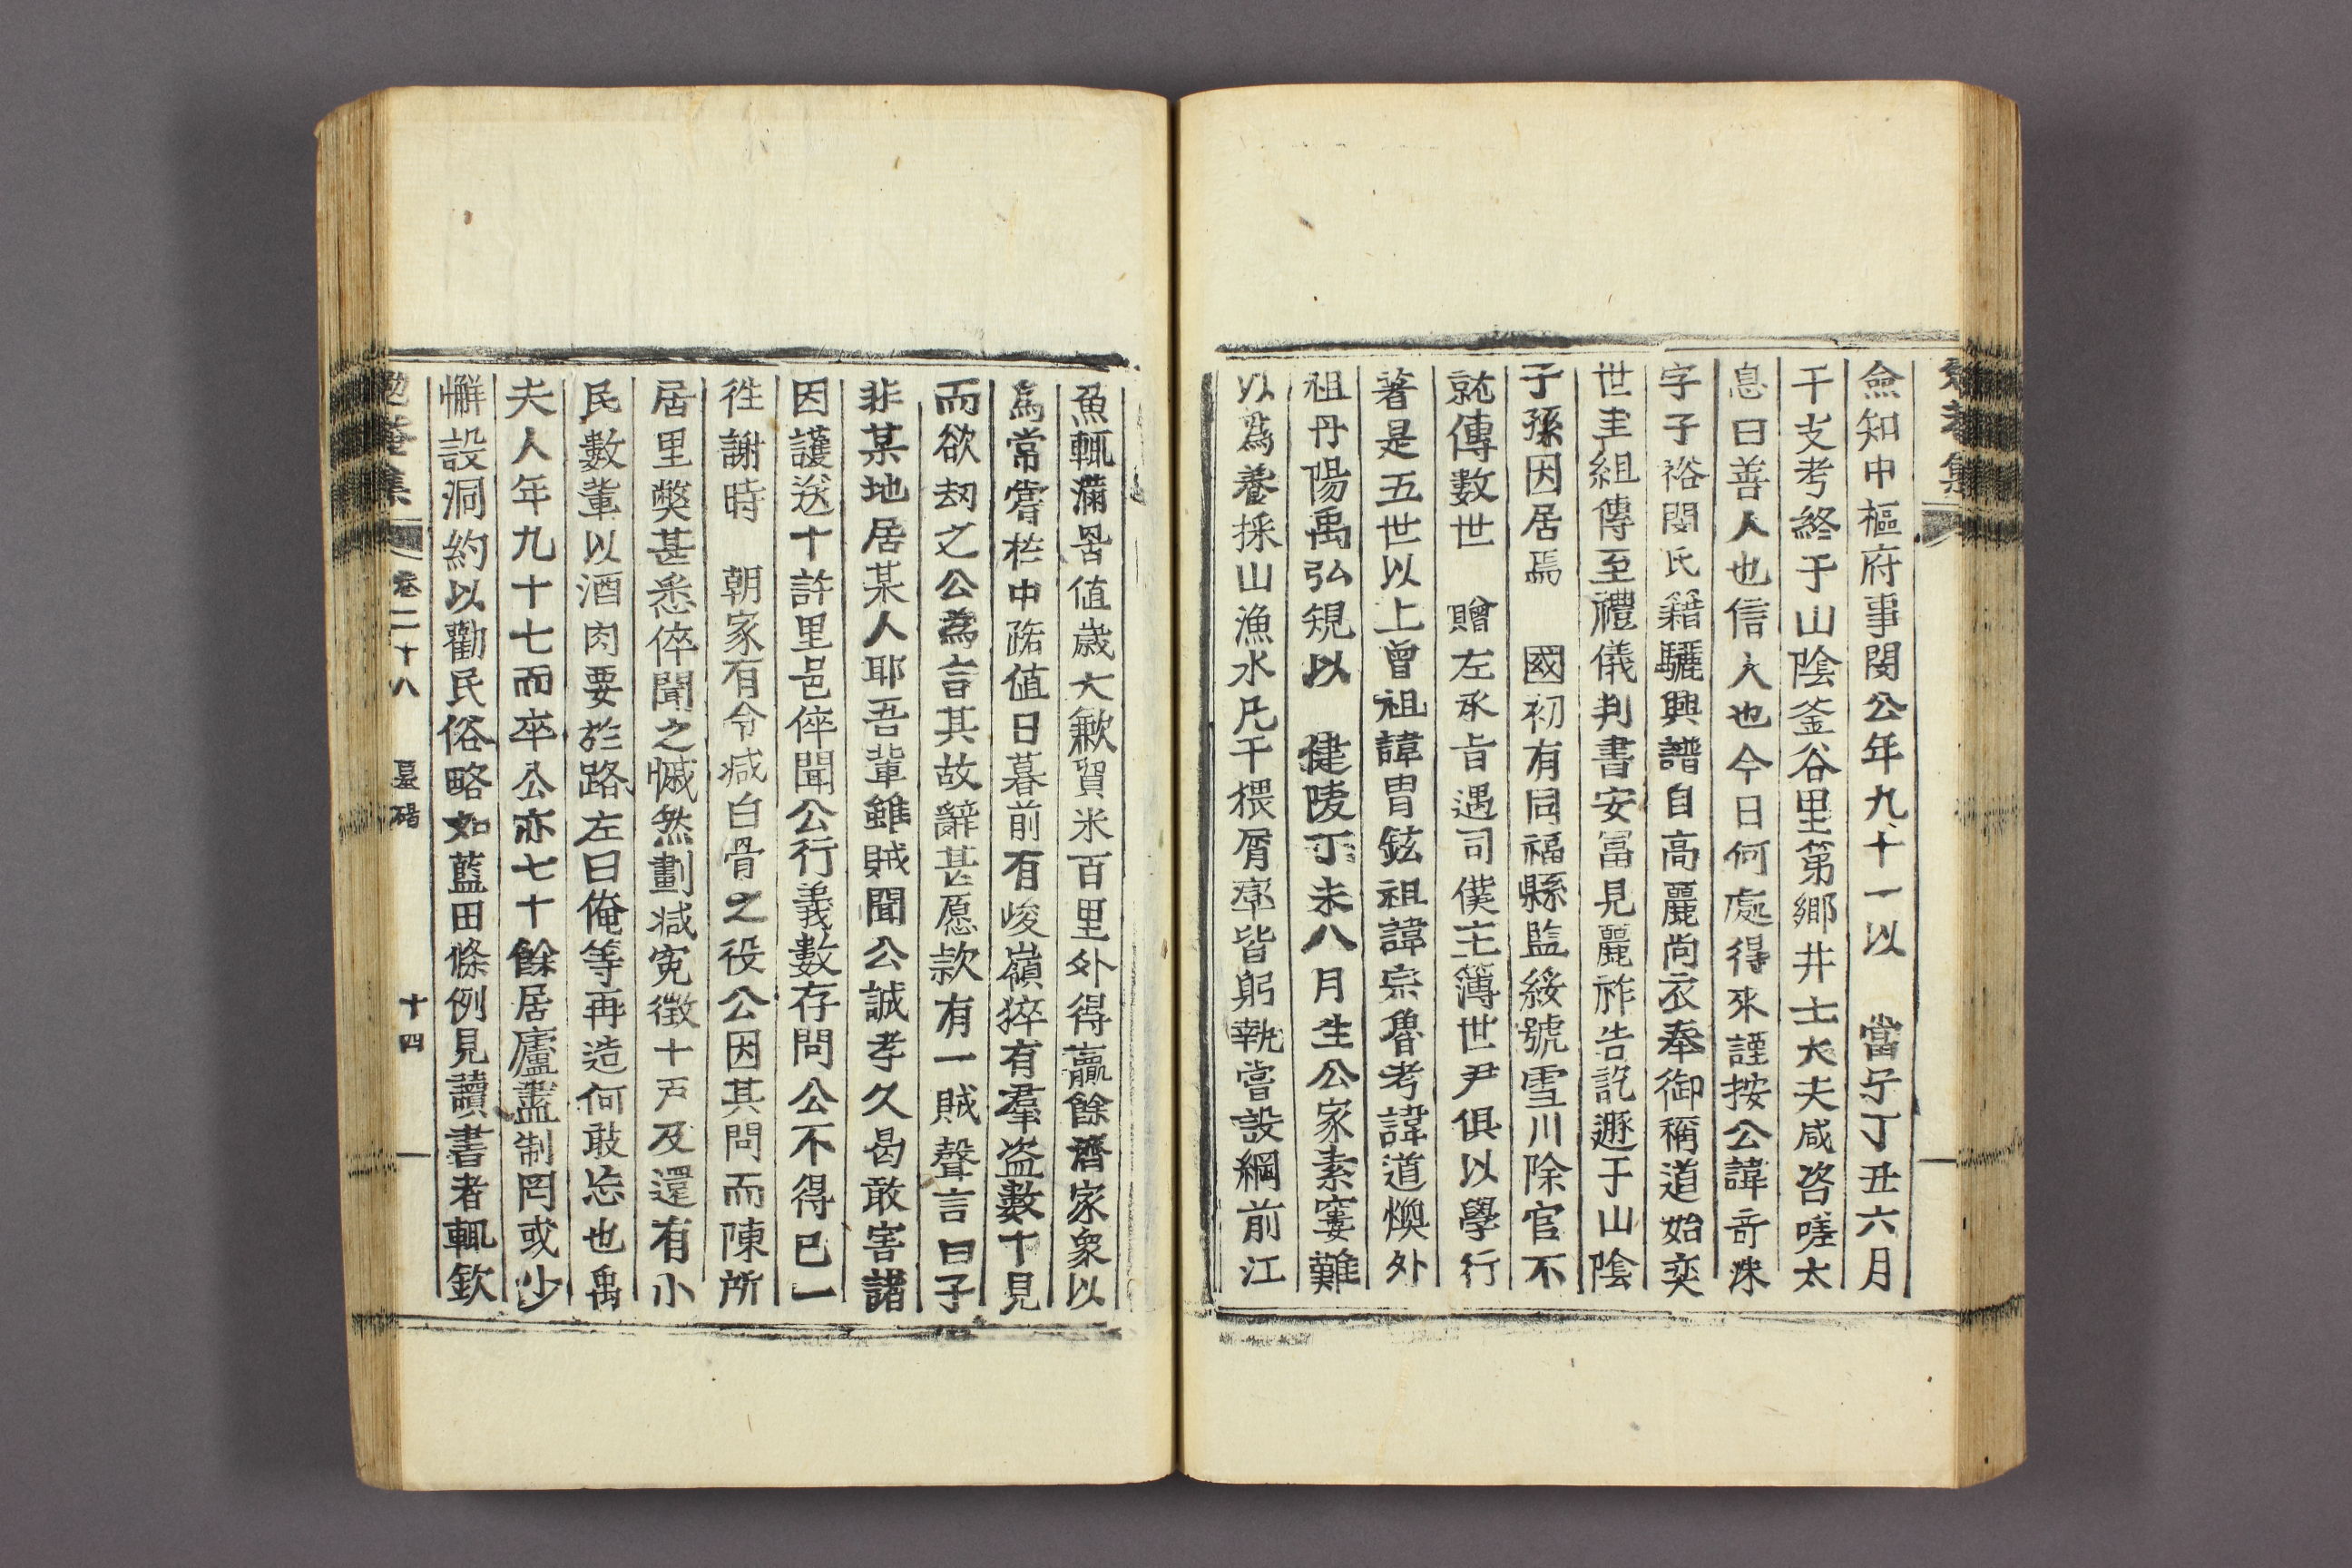 僉知中樞府事閔公年九十一以　當宁丁丑六月
干支考終于山陰釜谷里第鄉井士大夫咸咨嗟太
息曰善人也信人也今日何處得來謹按公諱奇洙
字子裕閔氏籍驪興譜自高麗尚衣奉御稱道始奕
世圭組傳至禮儀判書安富見麗祚告訖遯于山陰
子孫因居焉　國初有同福縣監綏號雪川除官不
就傳數世　贈左承旨遇司僕主簿世尹俱以學行
著是五世以上曾祖諱胄鉉祖諱宗魯考諱道煥外
祖丹陽禹弘規以　健陵丁未八月生公家素窶難
以爲養採山漁水凡干猥屑率皆躬執嘗設綱前江
魚輒滿罟値歲大歉貿米百里外得贏餘濟家衆以
爲常嘗於中路値日暮前有峻嶺猝有羣盜數十見
而欲刼之公為言其故辭甚愿款有一賊聲言曰子
非某地居某人耶吾輩雖賊聞公誠孝久曷敢害諸
因護送十許里邑倅聞公行義數存問公不得已一
徃謝時　朝家有令減白骨之役公因其問而陳所
居里獘甚悉倅聞之慽然劃減寃徵十戸及還有小
民數輩以酒肉要於路左曰俺等再造何敢忘也禹
夫人年九十七而卒公亦七十餘居廬盡制罔或少
懈設洞約以勸民俗略如藍田條例見讀書者輒欽
勉菴集　卷二十八　墓碣　十四